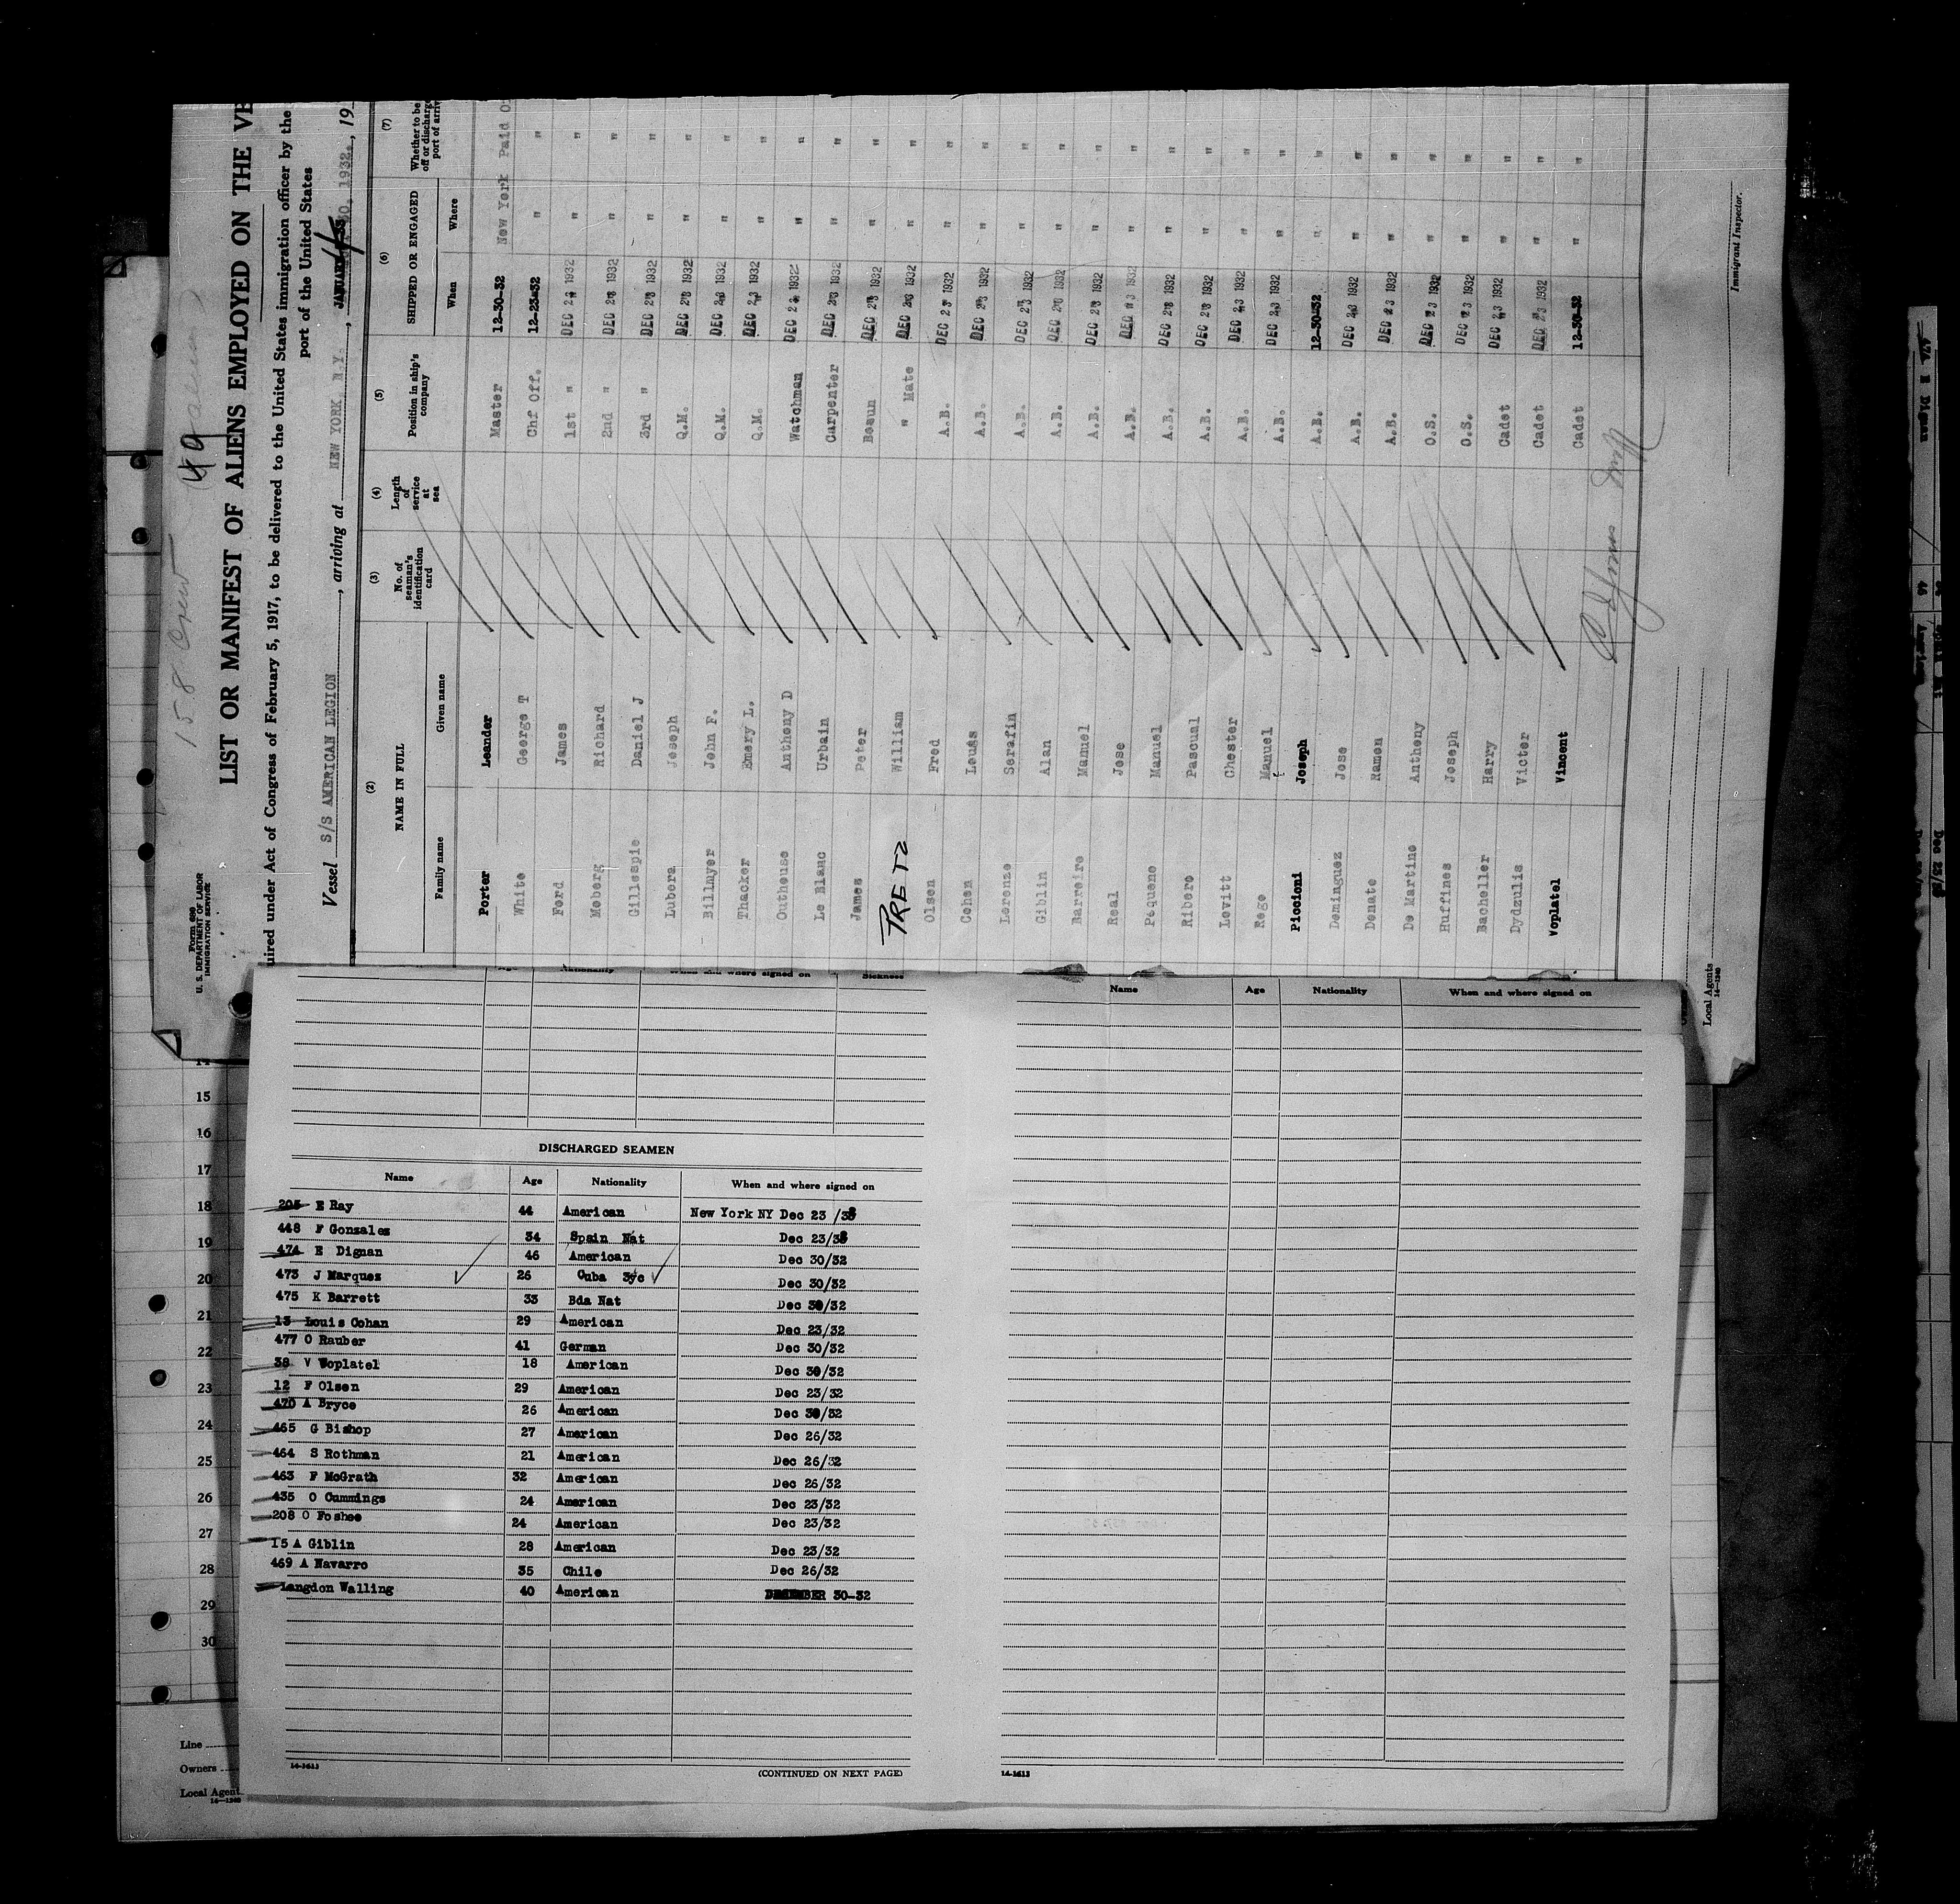 158 Crew
49
Form 689
U. S. DEPARTMENT OF LABOR
IMMIGRATION SERVICE
LIST OR MANIFEST OF ALIENS EMPLOYED ON THE VE
uired under Act of Congress of February 5, 1917, to be delivered to the United States immigration officer by the
port of the United States
Vessel S/S AMERICAN LEGION, arriving at NEW YORK N.Y., 30, 1932., 19
(2) (3) (4) (5) (6) (7)
NAME IN FULL No. of seaman's identification card Length of service at sea Position in ship's company SHIPPED OR ENGAGED Whether to be
off or discharge
port of arriv
Family name Given name When Where
Porter Leander Master 12-30-32 New York Paid O
White George T Chf Off. 12-23-32 " "
Ford James 1st " DEC 23 1932 " "
Moberg Richard 2nd " DEC 23 1932 " "
Gillespie Daniel J 3rd " DEC 23 1932 " "
Lubera Joseph Q.M. DEC 23 1932 " "
Billmyer John F. Q.M. DEC 23 1932 " "
Thacker Emery L. Q.M. DEC 23 1932 " "
Outhouse Anthony D Watchman DEC 23 1932 " "
Le Blanc Urbain Carpenter DEC 23 1932 " "
James Peter Bosun DEC 23 1932 " "
PRETZ William " Mate DEC 23 1932 " "
Olsen Fred A.B. DEC 23 1932 " "
Cohen Louis A.B. DEC 23 1932 " "
Lorenzo Serafin A.B. DEC 23 1932 " "
Giblin Alan A.B. DEC 23 1932 " "
Barreiro Manuel A.B. DEC 23 1932 " "
Real Jose A.B. DEC 23 1932 " "
Pequeno Manuel A.B. DEC 23 1932 " "
Ribero Pascual A.B. DEC 23 1932 " "
Levitt Chester A.B. DEC 23 1932 " "
Rego Manuel A.B. DEC 23 1932 " "
Piccioni Joseph A.B. 12-30-32 " "
Dominguez Jose A.B. DEC 23 1932 " "
Donate Ramon A.B. DEC 23 1932 " "
De Martino Anthony O.S. DEC 23 1932 " "
Huffines Joseph O.S. DEC 23 1932 " "
Bacheller Harry Cadet DEC 23 1932 " "
Dydzulis Victor Cadet DEC 23 1932 " "
Voplatel Vincent Cadet 12-30-32 " "
Immigrant Inspector.
Local Agents
14-1240
Age Nationality When and where signed on Sickness
DISCHARGED SEAMEN
Name Age Nationality When and where signed on
205 E Ray 44 American New York NY Dec 23 /32
448 F Gonzales 34 Spain Nat Dec 23/32
474 E Dignan 46 American Dec 30/32
473 J Marques 26 Cuba Dec 30/32
475 K Barrett 33 Bda Nat Dec 30/32
13 Louis Cohan 29 American Dec 23/32
477 O Rauber 41 German Dec 30/32
38 V Voplatel 18 American Dec 30/32
12 F Olsen 29 American Dec 23/32
470 A Bryce 26 American Dec 30/32
465 G Bishop 27 American Dec 26/32
464 S Rothman 21 American Dec 26/32
463 F McGrath 32 American Dec 26/32
435 O Cummings 24 American Dec 23/32
208 O Foshee 24 American Dec 23/32
15 A Giblin 28 American Dec 23/32
469 A Navarro 35 Chile Dec 26/32
Langdon Walling 40 American DECEMBER 30-32
14-1613
(CONTINUED ON NEXT PAGE)
Name Age Nationality When and where signed on
14-1613
14
15
16
17
18
19
20
21
22
23
24
25
26
27
28
29
30
Line
Owners
Local Agent
14-1240
474 E Dignan
46
American
Dec 23/32